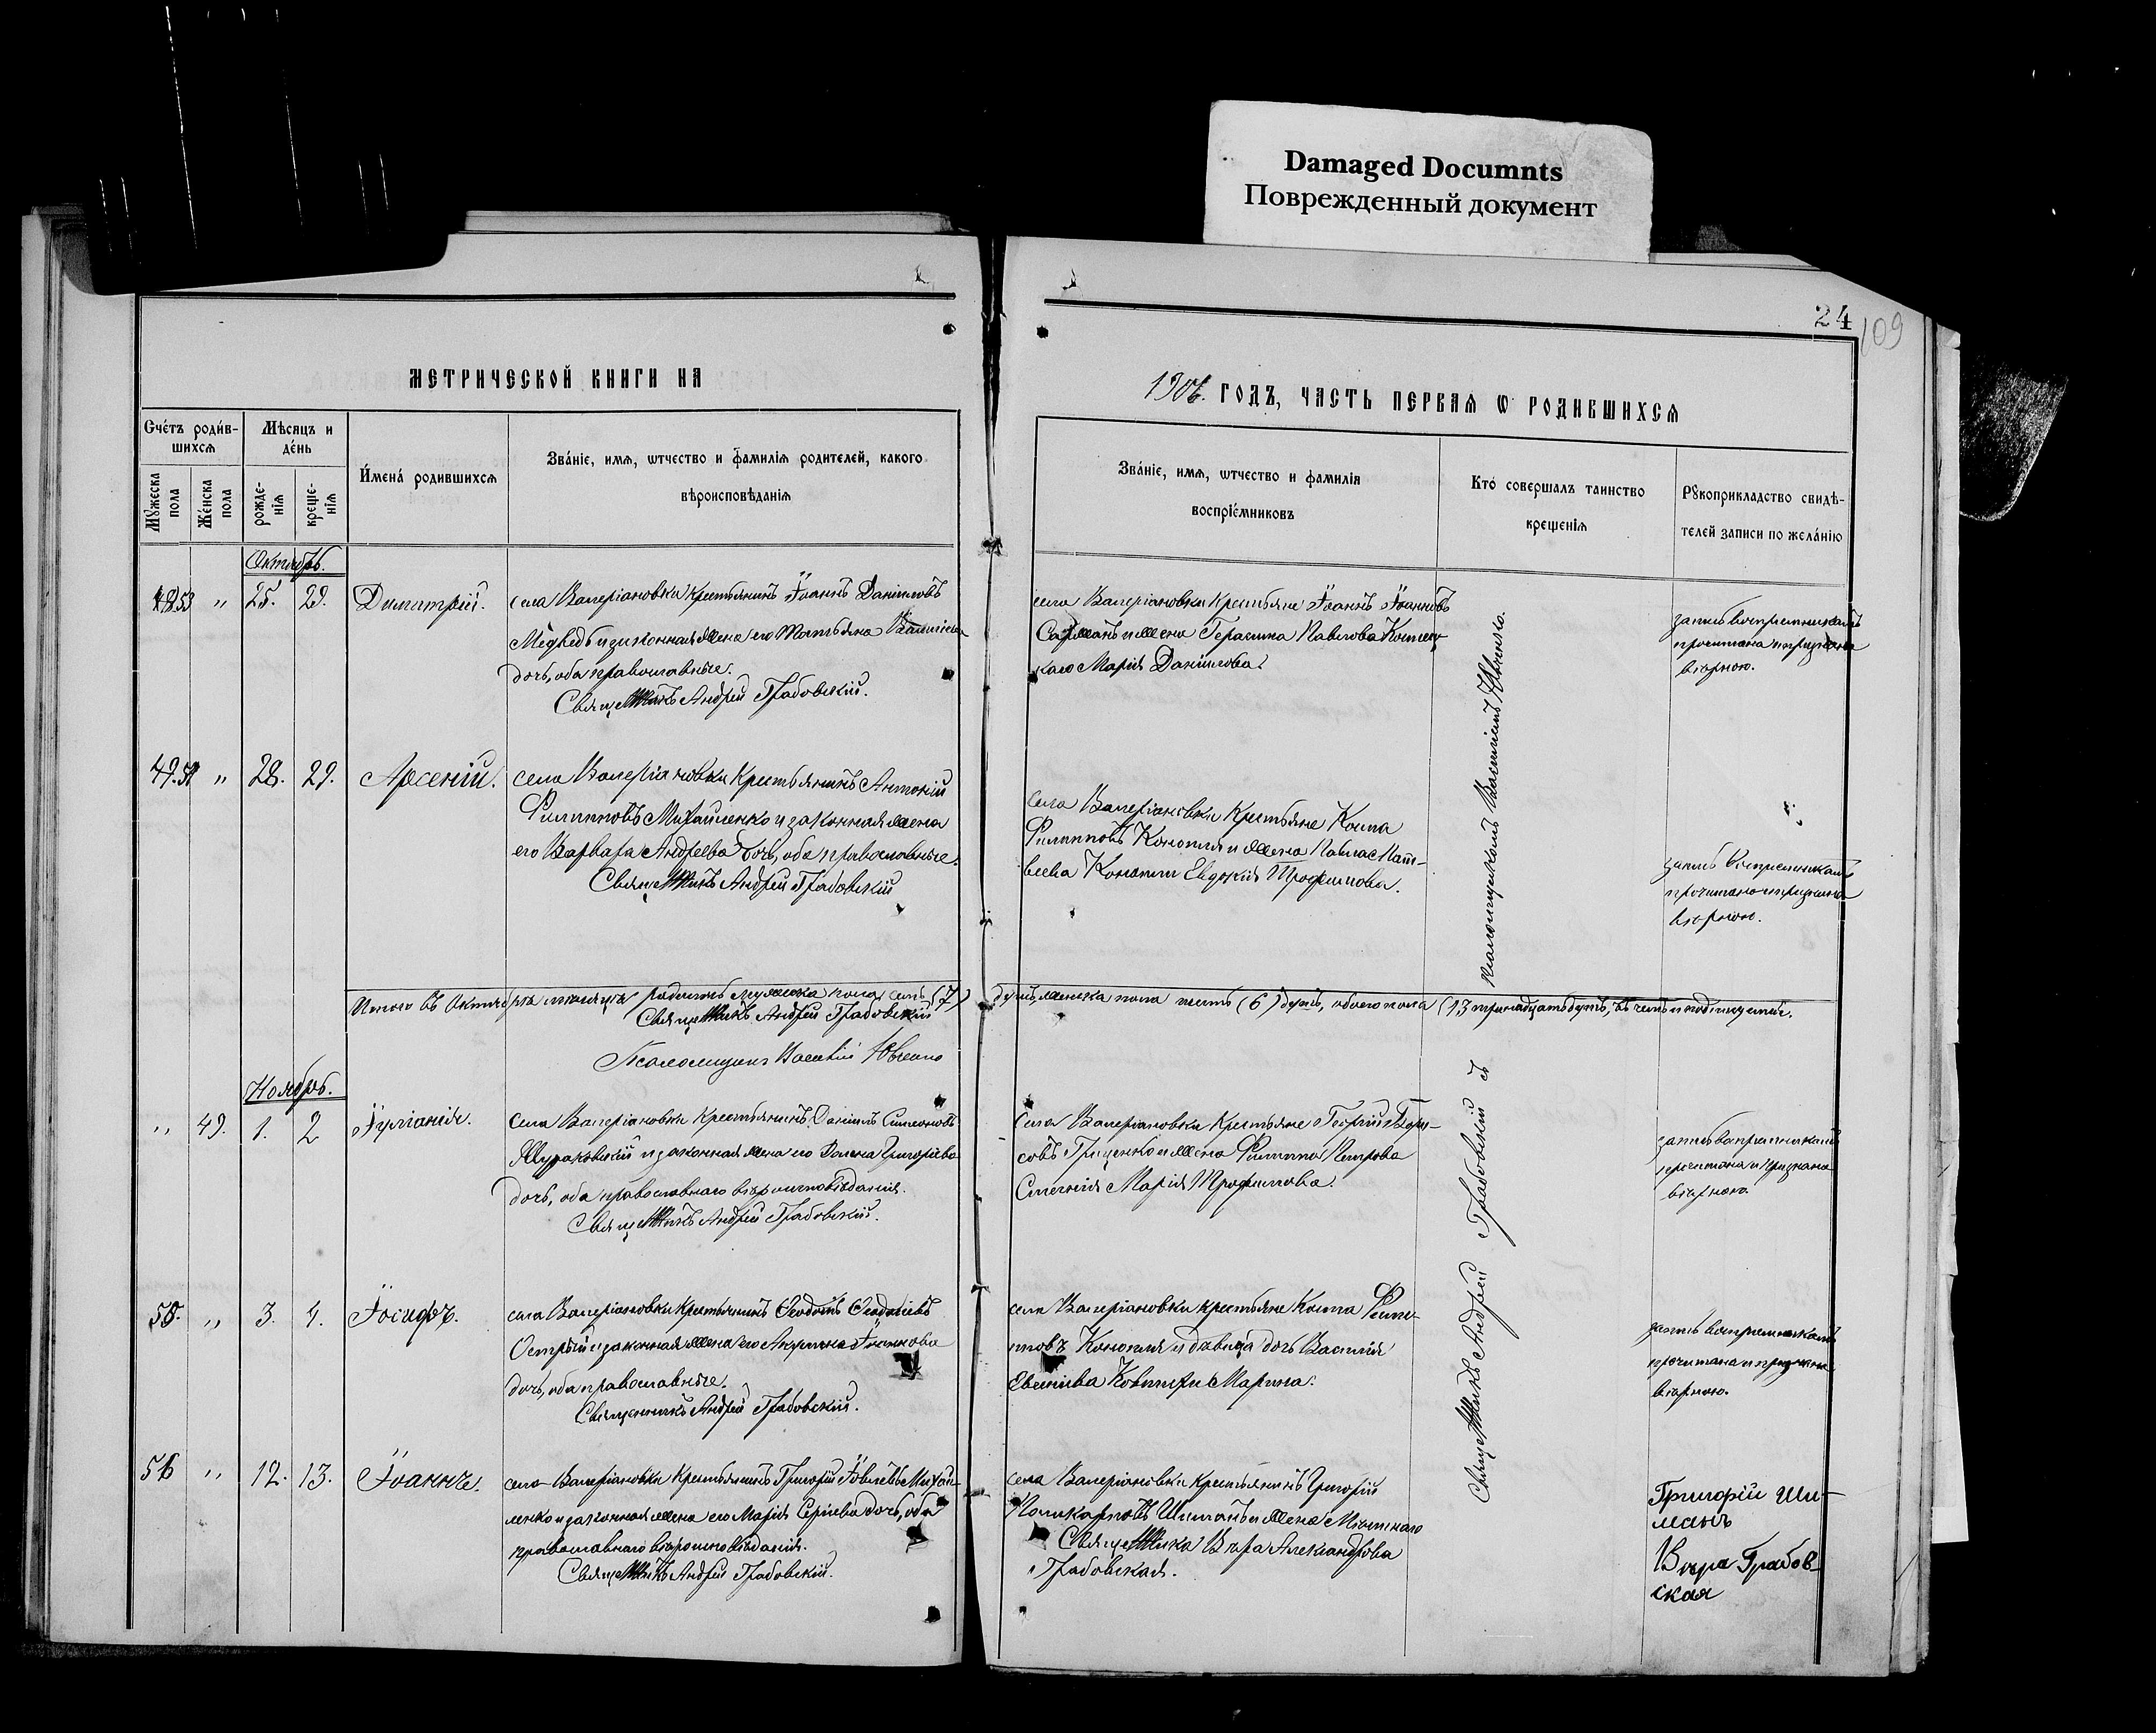 Damaged Documnts
Поврежденный документ
24
109
МЕТРИЧЕСКОЙ КНИГИ НА
1906. ГОДЪ, ЧАСТЬ ПЕРВАѦ Ѡ РОДИВШИХСѦ
Счéтъ родѝв-
шихсѧ
Мꙋжеска
пола
Жéнска
пола
Мѣсяцъ и
дéнь
рожде-
нїѧ
креще-
нїѧ
Имена родившихсѧ
Звáнїе, имѧ, ѡтчество и фамилїѧ родителей, какого
вѣроисповѣданїѧ
Звáнїе, имѧ, ѡтчество и фамилїѧ
воспрїéмниковъ
Кто совершалъ таинство
крещенїѧ
Рꙋкоприкладство свидѣ-
телей записи по желáнїю
Октябрь.
53 " 25. 29. Димитрій.
села Валеріановки крестьянинъ Іоаннъ Даніиловъ
Медведь и законная жена его Татьяна
дочь, оба православные.
Священникъ Андрей Грабовскій.
села Валеріановки крестьяне Іоаннъ Іоанновъ
и жена Герасима Павлова
Марія Даніилова.
запись воспріемникамъ
прочитана и признана
вѣрною.
" 28. 29. Арсеній.
села Валеріановки крестьянинъ Антоній
Филипповъ Михайленко и законная жена
его Варвара Андреева дочь, оба православные.
Священникъ Андрей Грабовскій
села Валеріановки крестьяне Косма
Филипповъ Конопля и жена Павла Мат-
веева Конопли Евдокія Трофимова.
запись воспріемникамъ
прочитана и признана
вѣрною.
Псаломщикомъ Василіемъ
Итого въ Октябрѣ мѣсяцѣ родилось мужеска пола семь (7) душъ, женска пола шесть (6) душъ, обоего пола (13 тринадцать душъ, въ чемъ и подпишемся.
Священникъ Андрей Грабовскій
Псаломщикъ Василій
Ноябрь.
" 49. 1. 2 Іуліанія.
села Валеріановки крестьянинъ Даніилъ Симеоновъ
Жураковскій и законная жена его Григорьева
дочь, оба православнаго вѣроисповѣданія.
Священникъ Андрей Грабовскій.
села Валеріановки крестьяне Георгій Бори-
совъ Гриценко и жена Филиппа Петрова
Марія Трофимова.
запись воспріемникамъ
прочитана и признана
вѣрною.
Священникъ Андрей Грабовскій съ
55. " 3. 4. Іосифъ.
села Валеріановки крестьянинъ Ѳеодотъ Ѳеодосіевъ
Острый и законная жена его Акулина Іоаннова
дочь, оба православные.
Священникъ Андрей Грабовскій.
села Валеріановки крестьяне Косма Филип-
повъ Конопля и дѣвица дочь Василія
Евѳиміева Марина.
запись воспріемникамъ
прочитана и признана
вѣрною.
56 " 12. 13. Іоаннъ.
села Валеріановки крестьянинъ Григорій Іовлевъ Михай-
ленко и законная жена его Марія Сергіева дочь, оба
православнаго вѣроисповѣданія.
Священникъ Андрей Грабовскій.
села Валеріановки крестьянинъ Григорій
Поликарповъ Шиманъ и жена Мѣстнаго
Священника Вѣра Александрова
Грабовская.
Григорій Ши-
манъ
Вѣра Грабов-
ская